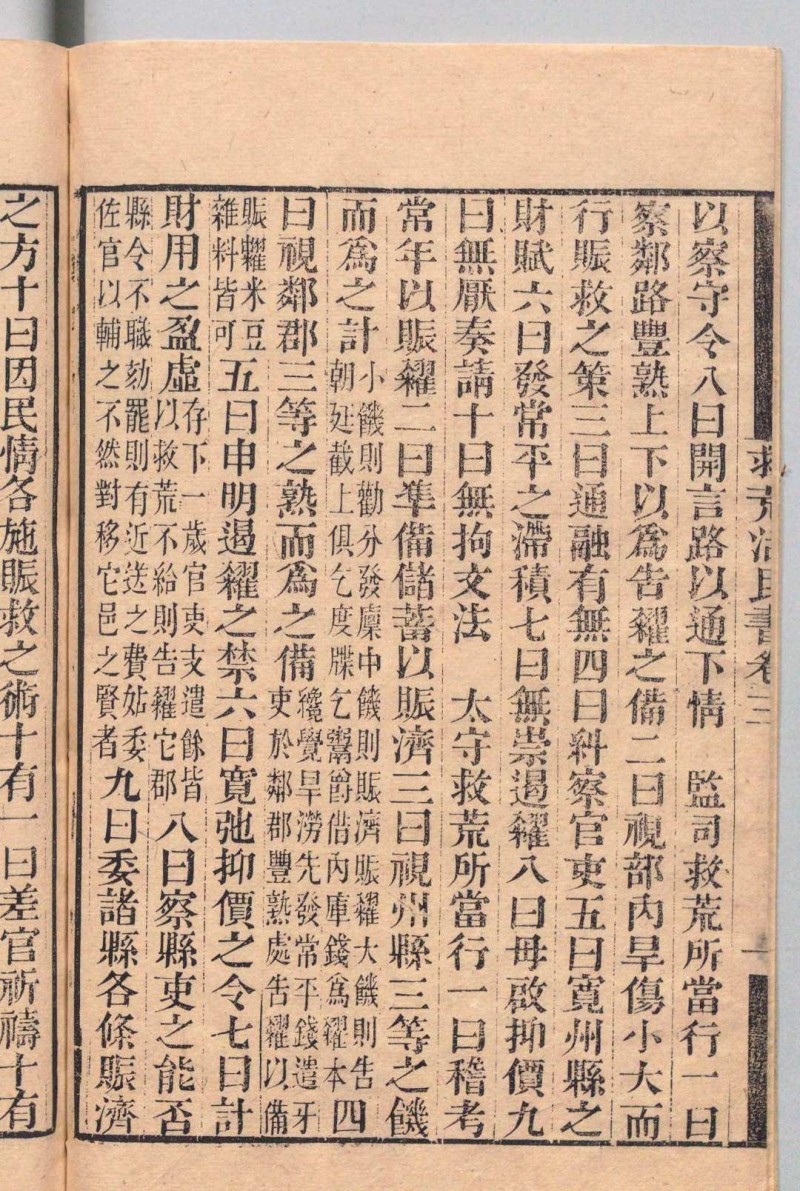 救荒活民書卷三
一
以察守令八曰開言路以通下情　監司救荒所當行一曰
察鄰路豐熟上下以爲告糴之備二曰視部內旱傷小大而
行賑救之策三曰通融有無四曰糾察官吏五曰寛州縣之
財賦六曰發常平之滯積七曰無崇遏糴八曰毋啟抑價九
曰無厭奏請十曰無拘文法　太守救荒所當行一曰稽考
常年以賑糶二曰準備儲蓄以賑濟三曰視州縣三等之饑
而爲之計小饑則勸分發廩中饑則賑濟賑糶大饑則告朝廷截上供乞度牒乞鬻爵借內庫錢爲糴本四
曰視鄰郡三等之熟而爲之備纔覺旱澇先發常平錢遣牙吏於鄰郡豐熟處告糴以備
賑糶米豆雜料皆可五曰申明遏糴之禁六曰寛弛抑價之令七曰計
財用之盈虛存下一歲官吏支遣餘皆以救荒不給則告糴它郡八曰察縣吏之能否
縣令不職劾罷則有迎送之費姑委佐官以輔之不然對移它邑之賢者九曰委諸縣各條賑濟
之方十曰因民情各施賑救之術十有一曰差官祈禱十有